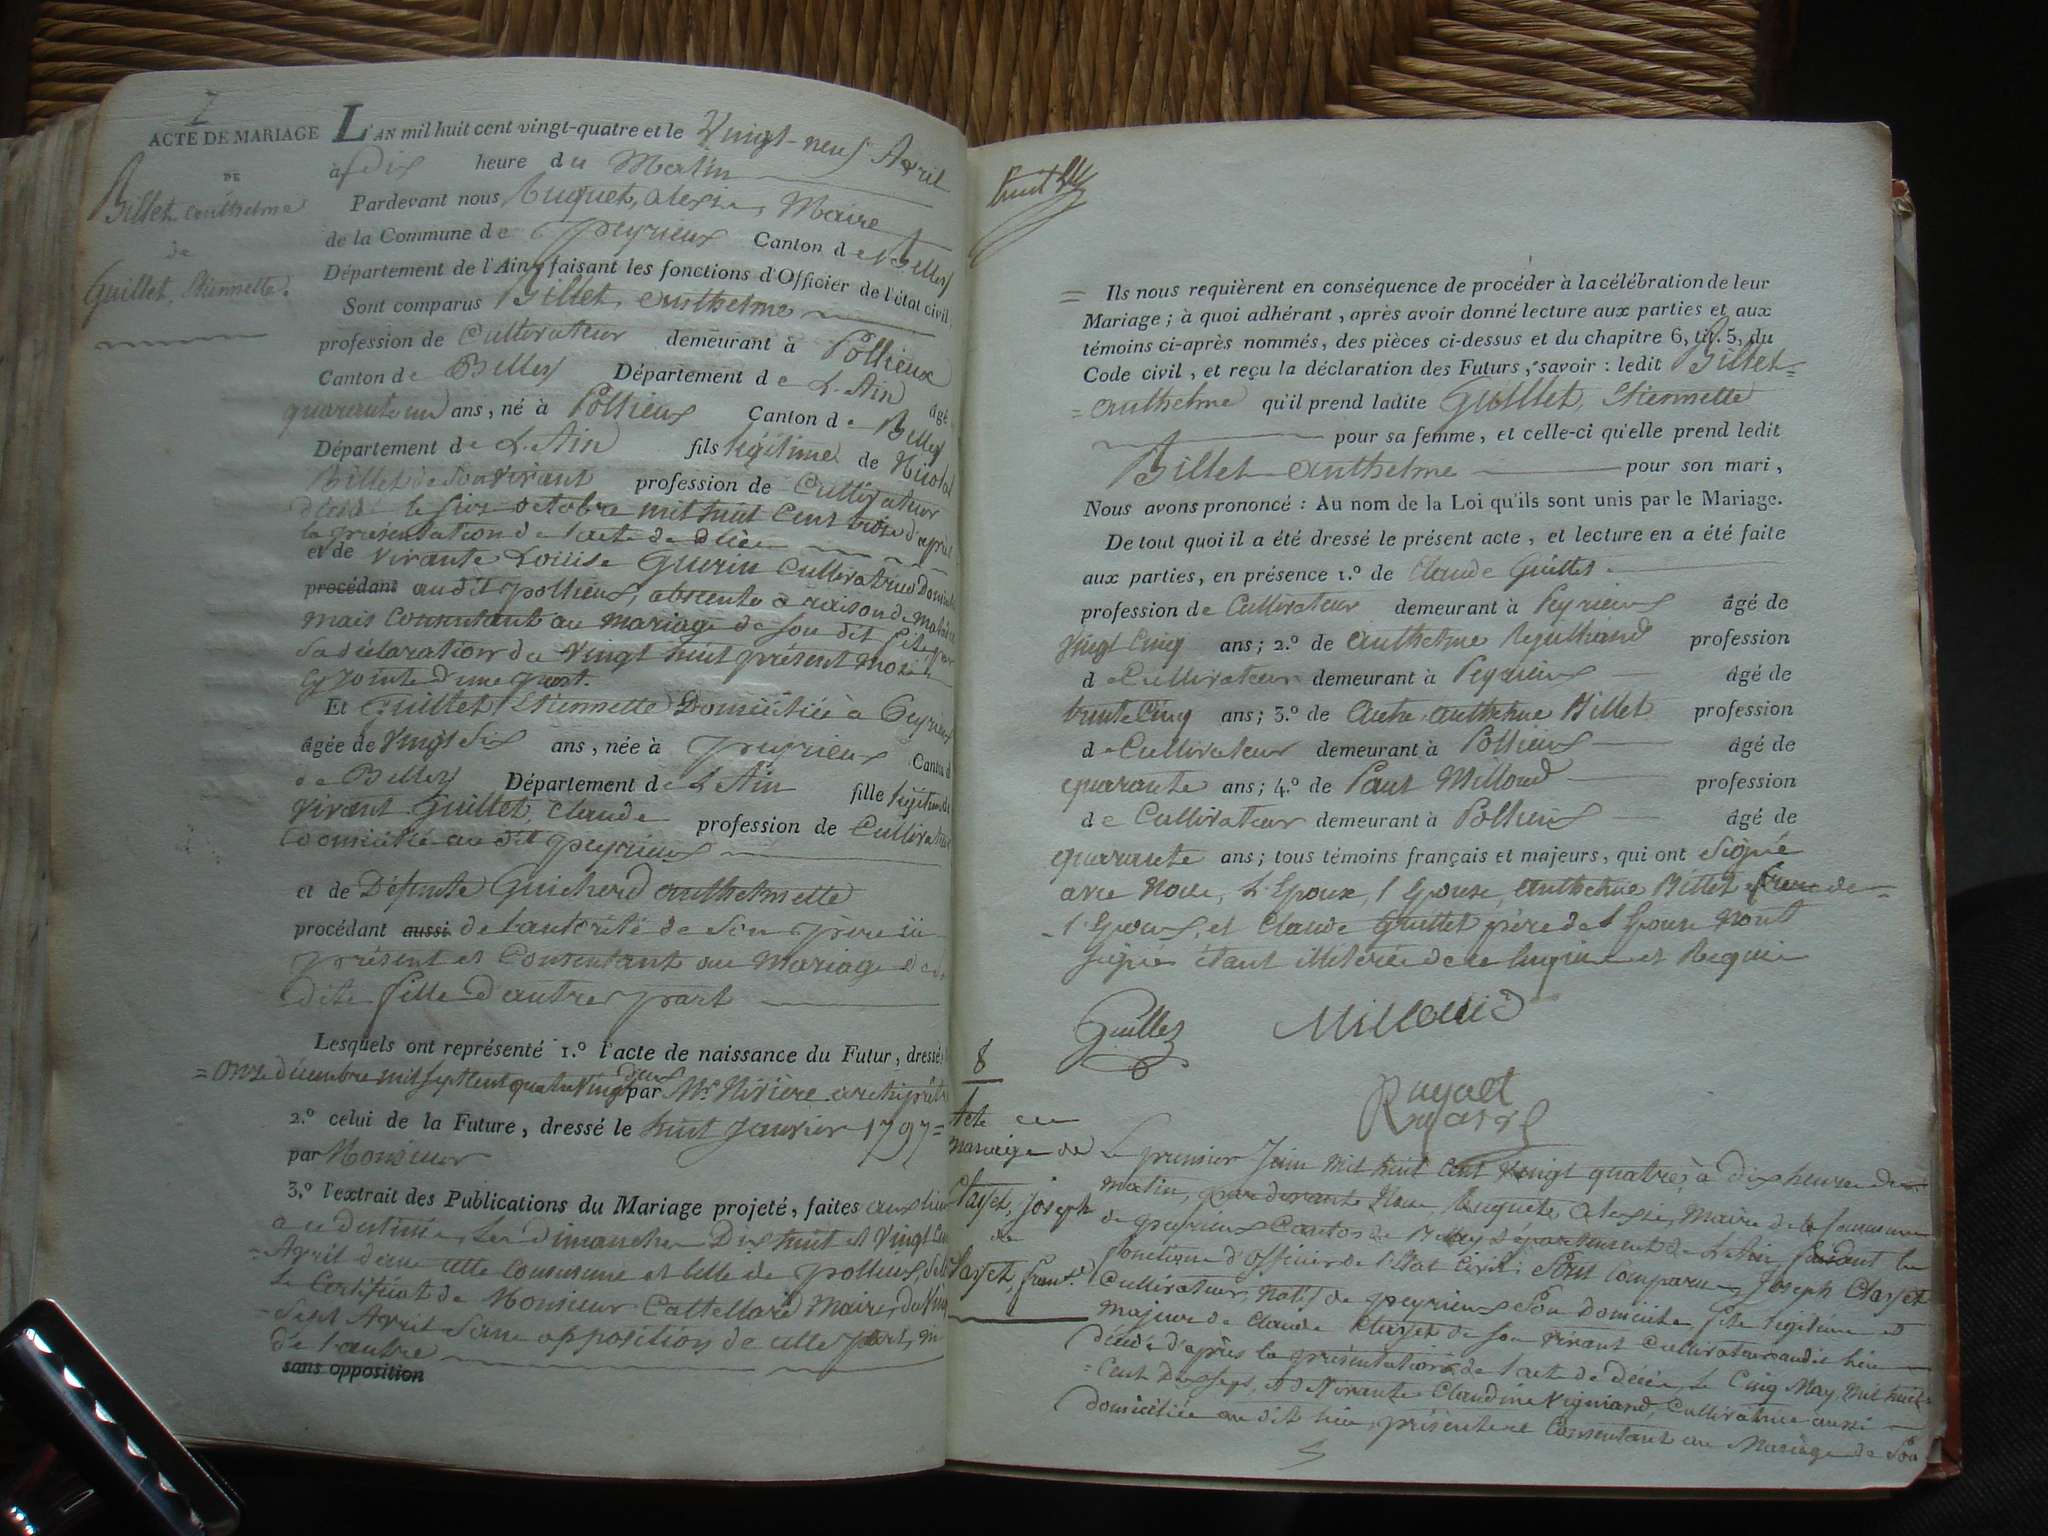 7
ACTE DE MARIAGE
DE
Billet Anthelme
de
Guillet, Etiennette.
L'AN mil huit cent vingt-quatre et le Vingt-neuf Avril
à dix heure du Matin
Pardevant nous Alexis, Maire
de la Commune de Peyrieux Canton de Belley
Département de l'Ain, faisant les fonctions d'Officier de l'état civil,
Sont comparus Billet, anthelme
profession de Cultivateur demeurant à Pollieux
Canton de Belley Département de L'Ain âgé
quarante un ans, né à Pollieux Canton de Belley
Département de L'Ain fils légitime de Nicolas
Billet de son vivant profession de Cultivateur
octobre mil huit Cent treize d'après
la présentation de l'acte de décès
et de vivante Louise Guerin Cultivatrice
procédant au dit pollieux, absente a raison de
mais Consentant au mariage de son dit fils par
Sa déclaration du Vingt huit présent mois
Cy Jointe d'une part.
Et Guillet Etiennette Domiciliée à Peyrieux
âgée de Vingt Six ans, née à peyrieux Canton
de Belley Département de L'Ain fille légitime de
vivant Guillet, Claude profession de Cultivateur
domicilié au dit peyrieux
et de Défunte Guichard anthelmette
procédant aussi de l'autorité de Son père ici
présent et Consentant au Mariage de
dite fille d'autre part
Lesquels ont représenté 1.º l'acte de naissance du Futur, dressé
= onze décembre mil sept cent quatre vingt deux par Mr Nivière archiprêtre
2.º celui de la Future, dressé le huit Janvier 1797 =
par Monsieur
3.º l'extrait des Publications du Mariage projeté, faites aux lieux
a ce destinés, les dimanches Dix huit et Vingt Cinq
= Avril dans cette commune et celle de pollieux,
Le Certificat de Monsieur Cattellard Maire, du Vingt
= Sept Avril Sans opposition de cette part, ni
de l'autre
sans opposition
huit
= Ils nous requièrent en conséquence de procéder à la célébration de leur
Mariage ; à quoi adhérant, après avoir donné lecture aux parties et aux
témoins ci-après nommés, des pièces ci-dessus et du chapitre 6, tit. 5, du
Code civil, et reçu la déclaration des Futurs, savoir : ledit Billet =
= anthelme qu'il prend ladite Guillet, Etiennette
pour sa femme, et celle-ci qu'elle prend ledit
Billet anthelme pour son mari,
Nous avons prononcé : Au nom de la Loi qu'ils sont unis par le Mariage.
De tout quoi il a été dressé le présent acte, et lecture en a été faite
aux parties, en présence 1.º de Claude Guillet
profession de Cultivateur demeurant à Peyrieux âgé de
Vingt Cinq ans ; 2.º de anthelme profession
de Cultivateur demeurant à Peyrieux âgé de
trente Cinq ans ; 3.º de autre anthelme Billet profession
de Cultivateur demeurant à Pollieux âgé de
quarante ans ; 4.º de Paul Milloud profession
de Cultivateur demeurant à Pollieux âgé de
quarante ans ; tous témoins français et majeurs, qui ont Signé
avec Nous, L'Epoux, l'Epouse, anthelme Billet frère de =
= l'Epoux, et Claude Guillet père de l'Epouse n'ont
signé étant illitérés de ce Enquis et Requis
Guillet Millioud
8
Acte de
mariage de
Clayet, Joseph
de
Le premier Juin Mil huit Cent Vingt quatre, à dix heures du
matin, par devant Nous Alexis, Maire de la Commune
de peyrieux Canton de Belley département de L'Ain, faisant les
fonctions d'Officier de l'Etat Civil ; Sont Comparu Joseph Clayet
Cultivateur, Natif de peyrieux Son domicile, fils légitime et
majeur de Claude Clayet de son vivant Cultivateur audit lieu
décédé d'après la présentation de l'acte de décès, le Cinq May, mil huit =
= Cent Dix sept, et de Vivante Claudine Cultivatrice aussi
domiciliée au dit lieu, présente et Consentant au Mariage de Son